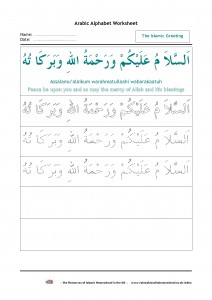 Arabic Alphabet Worksheet
Name:
Date:
The Islamic Greeting
اَلسَّلَا مُ عَلَيْكُمْ وَرَحْمَةُ اللهِ وَبَرَكَا تُهُ
Assalamu'alaikum warahmatullaahi wabarakaatuh
Peace be upon you and so may the mercy of Allah and his blessings
اَلسَّلَا مُ عَلَيْكُمْ وَرَحْمَةُ اللهِ وَبَرَكَا تُهُ
اَلسَّلَا مُ عَلَيْكُمْ وَرَحْمَةُ اللهِ وَبَرَكَا تُهُ
اَلسَّلَا مُ عَلَيْكُمْ وَرَحْمَةُ اللهِ وَبَرَكَا تُهُ